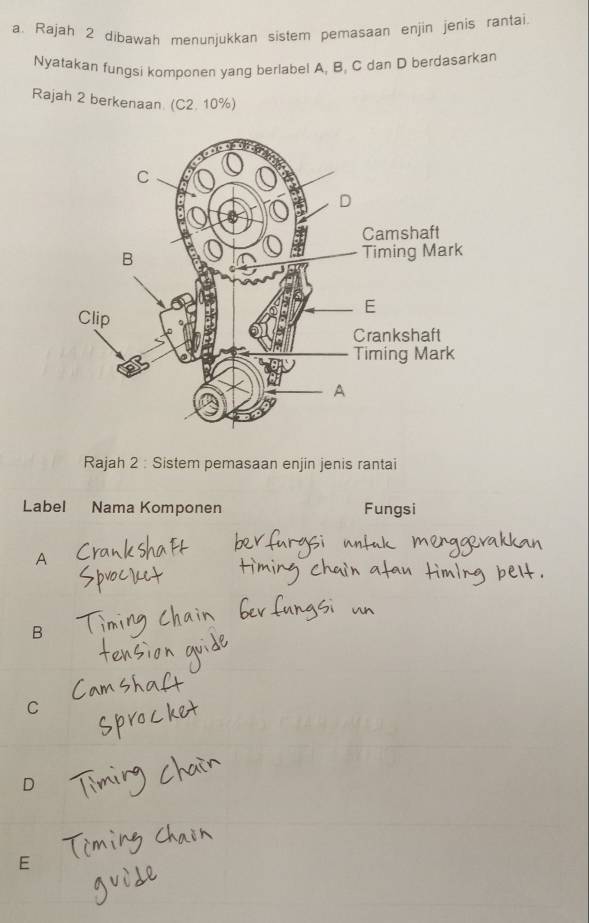 a. Rajah 2 dibawah menunjukkan sistem pemasaan enjin jenis rantai.
Nyatakan fungsi komponen yang berlabel A, B, C dan D berdasarkan
Rajah 2 berkenaan. (C2. 10%)
C
D
Camshaft
Timing Mark
B
E
Clip
Crankshaft
Timing Mark
A
Rajah 2 : Sistem pemasaan enjin jenis rantai
Label Nama Komponen Fungsi
A Crankshaft berfungsi untuk menggerakkan
Sprocket timing chain atau timing belt.
B Timing Chain berfungsi un
tension guide
C Camshaft
sprocket
D Timing chain
E Timing chain
guide